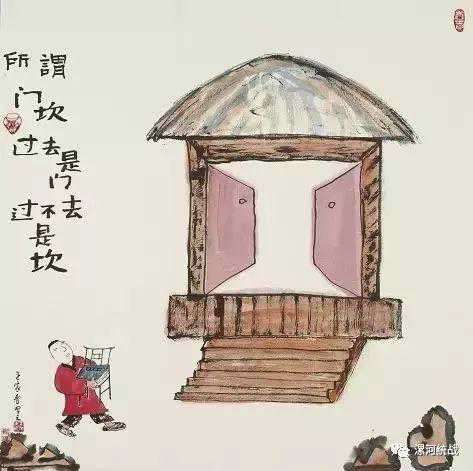 所謂
门坎
过去是门
过不去是坎
漯河统战